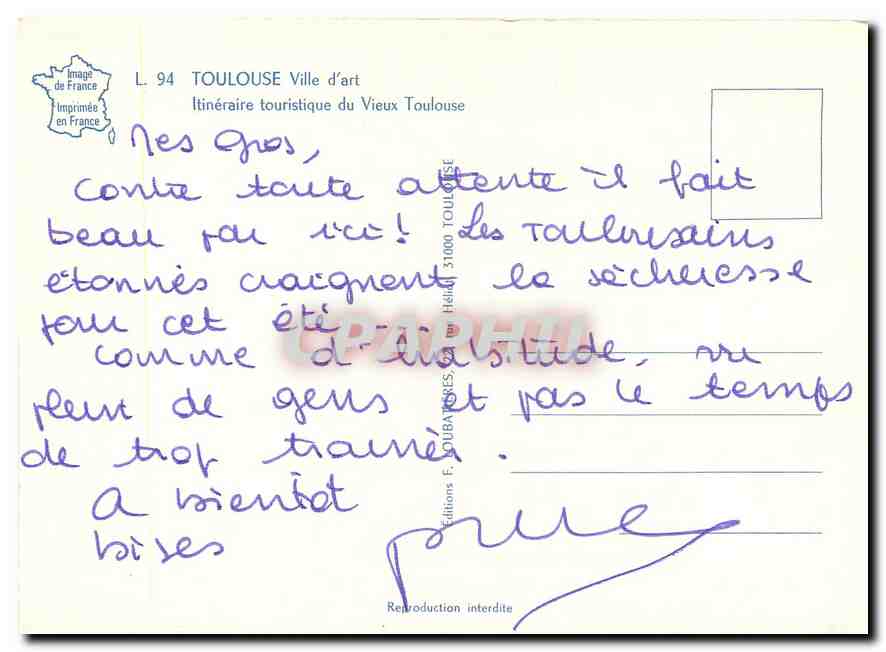 Image
de France
Imprimée
en France
L. 94 TOULOUSE Ville d'art
Itinéraire touristique du Vieux Toulouse
Mes Gros,
Contre toute attente il fait
beau par ici! Les Toulousains
étonnés craignent la sécheresse
pour cet été...
Comme d'habitude, vu
plein de gens et pas le temps
de trop trainer.
A bientôt
bises
Editions F. LOUBATIERES, rue Hélios, 31000 TOULOUSE
CPAPHIL
Reproduction interdite